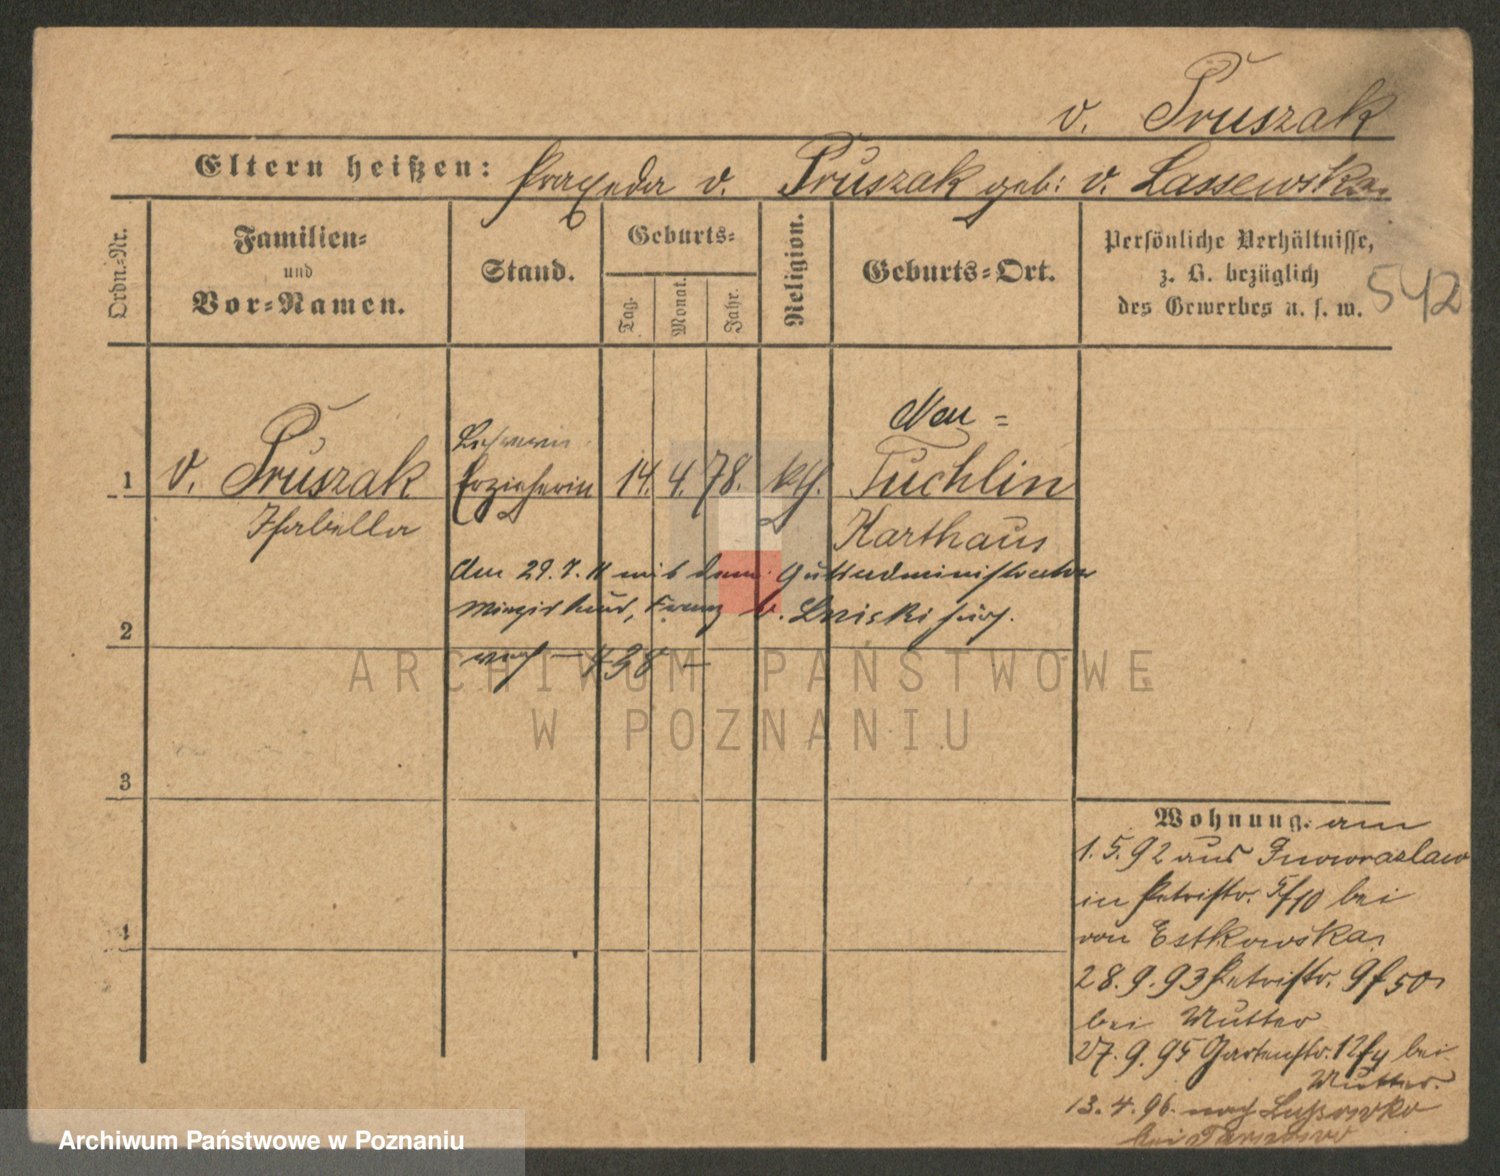 v. Pruszak
Eltern heißen: Praxeda v. Pruszak geb: v. Lassewska
Ordn.-Nr.
Familien-
und
Vor-Namen.
Stand.
Geburts-
Tag.
Monat.
Jahr.
Religion.
Geburts-Ort.
Persönliche Verhältnisse,
z. B. bezüglich
des Gewerbes u. s. w.
542
Neu-
Lehrerin
1 v. Pruszak Erzieherin 14. 4. 78. kth. Tuchlin
Isabella Karthaus
den 29.7.11 mit dem Gutsadministrator
Franz v. Lniski hier.
2
verh
ARCHIWUM PAŃSTWOWE
W POZNANIU
3
4
Wohnung: am
1.5.92 aus Inowrazlaw
in Petristr. 5/10 bei
von Estkowska
28.9.93 Petristr. 9/50
bei Mutter
27.9.95 Gartenstr. 12/4 bei
Mutter.
13.4.96. nach Lussowko
bei Tarnowo
Archiwum Państwowe w Poznaniu